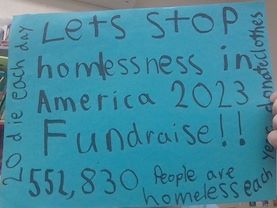 Lets stop
homlessness in
America 2023
Fundraise!!
552,830 People are
homeless each year
20 die each day
donate clothes